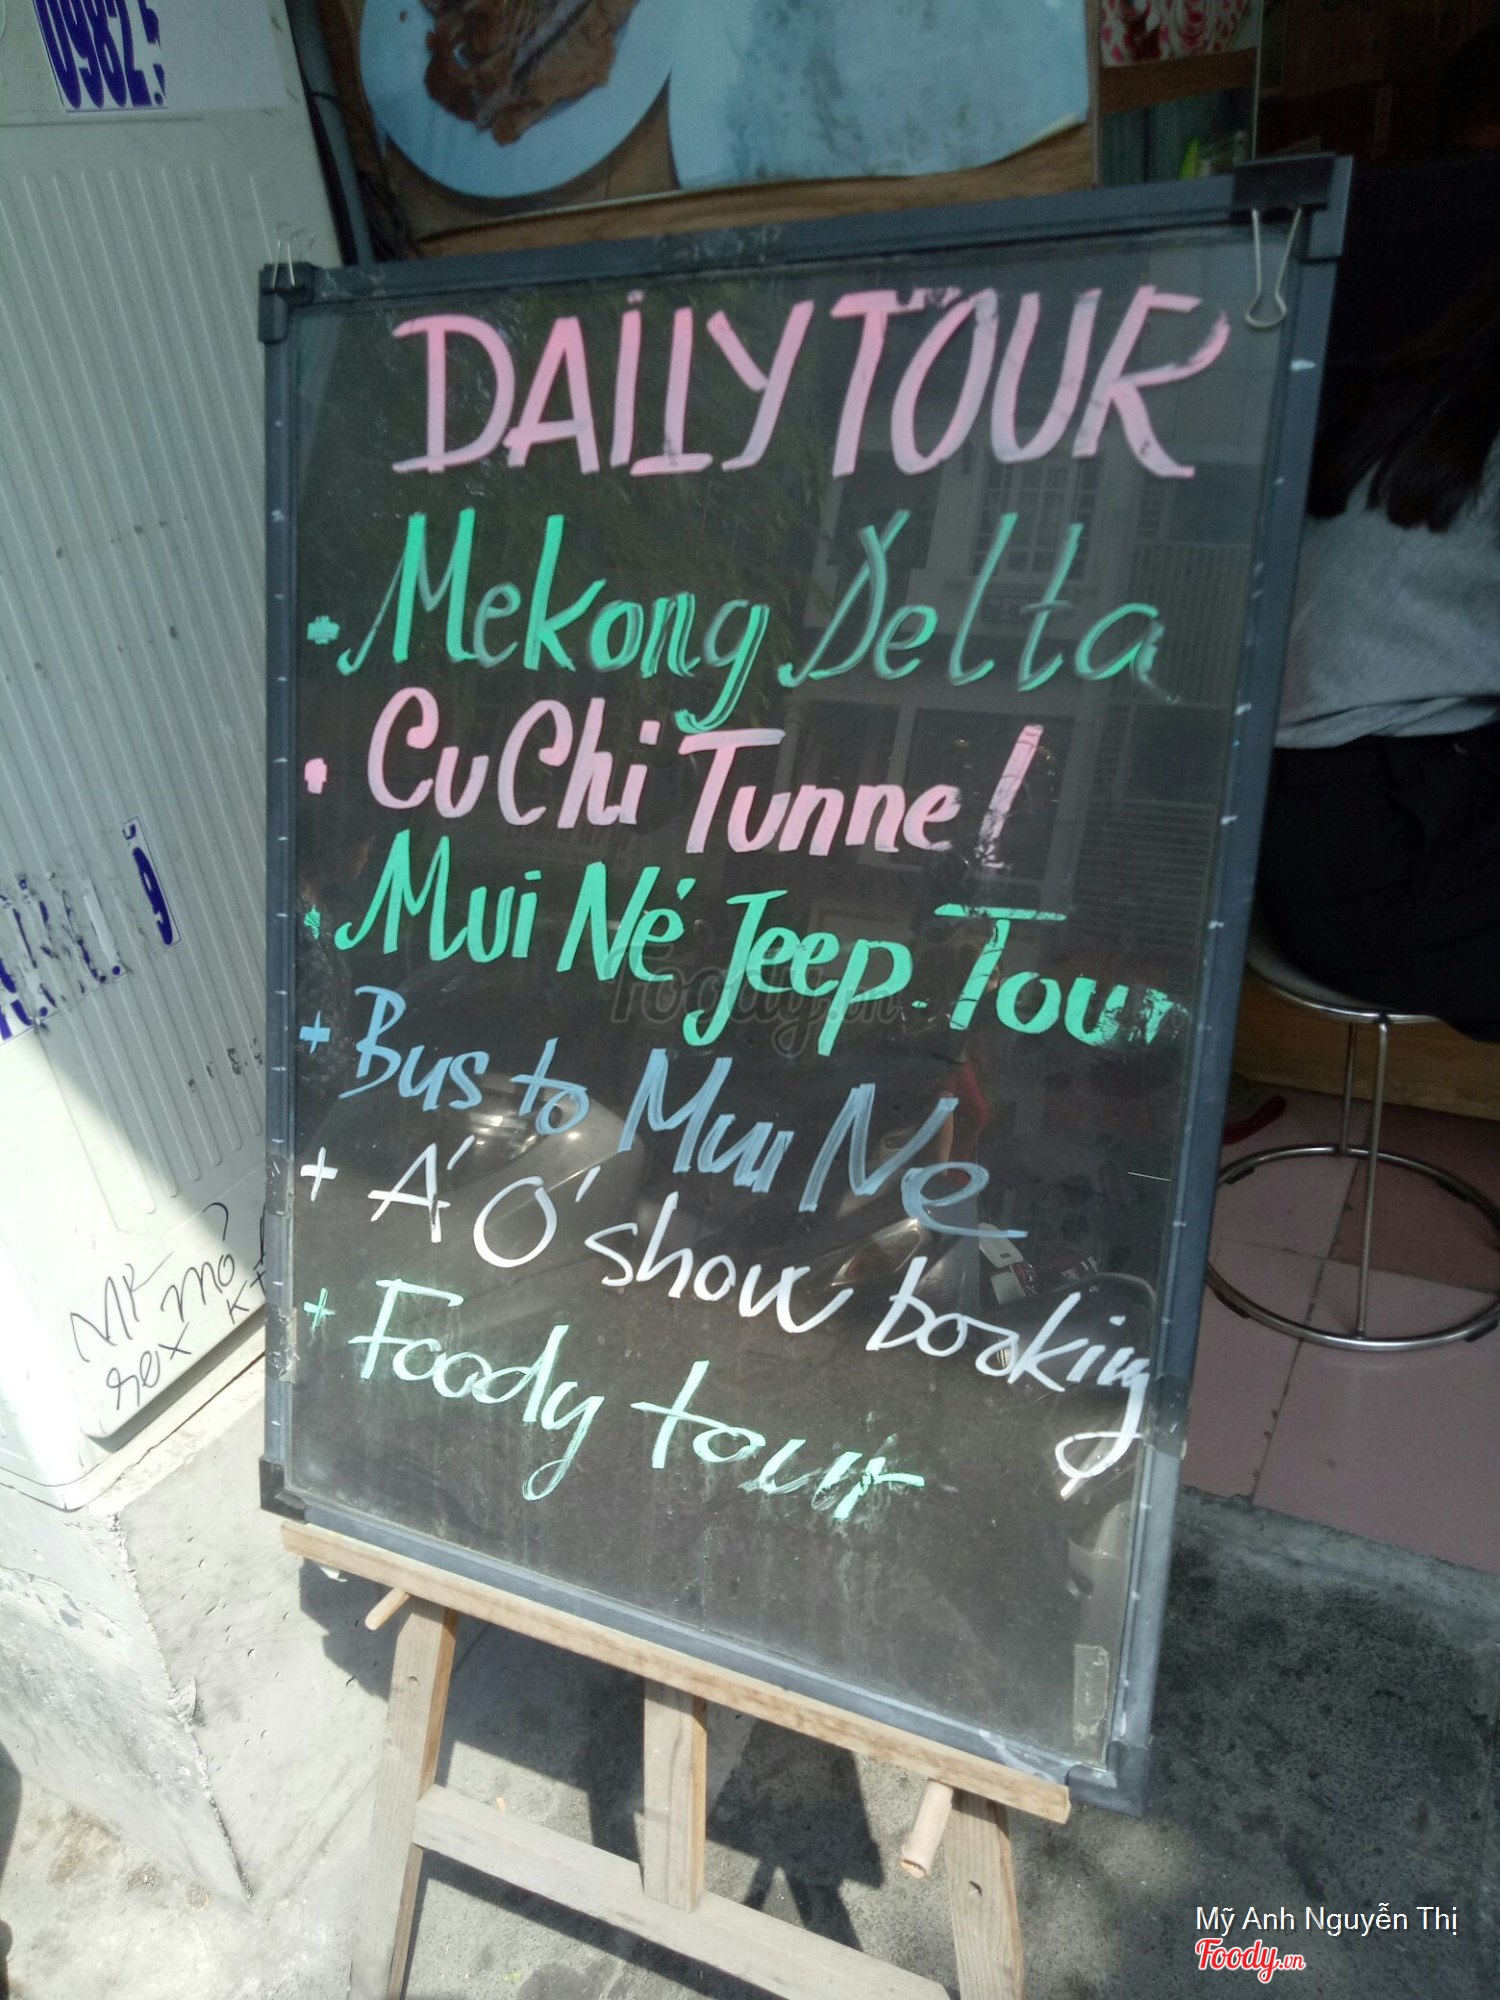 0982.
DAILY TOUR
· Mekong Delta
· Cu Chi Tunnel
· Mui Né Jeep. Tour
+ Bus to Mui Ne
+ Á Ó show booking
+ Foody tour
Foody.vn
Mỹ Anh Nguyễn Thị
Foody.vn